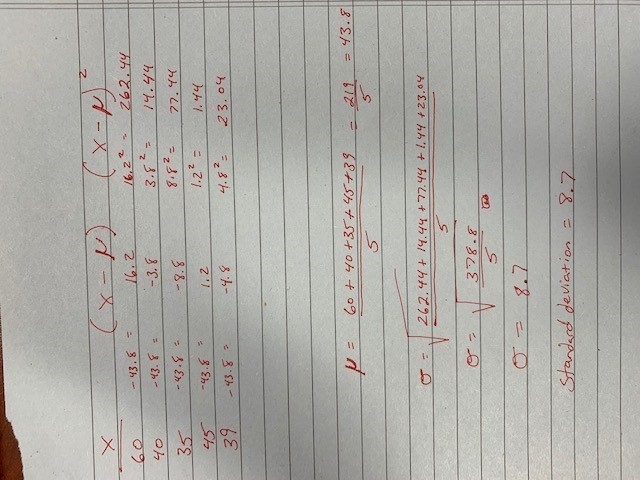 X (X - μ) (X - μ)²
60 -43.8 = 16.2 16.2² = 262.44
40 -43.8 = -3.8 3.8² = 14.44
35 -43.8 = -8.8 8.8² = 77.44
45 -43.8 = 1.2 1.2² = 1.44
39 -43.8 = -4.8 4.8² = 23.04
μ = 60 + 40 + 35 + 45 + 39 / 5 = 219 / 5 = 43.8
σ = √ 262.44 + 14.44 + 77.44 + 1.44 + 23.04 / 5
σ = √ 378.8 / 5
σ = 8.7
Standard deviation = 8.7